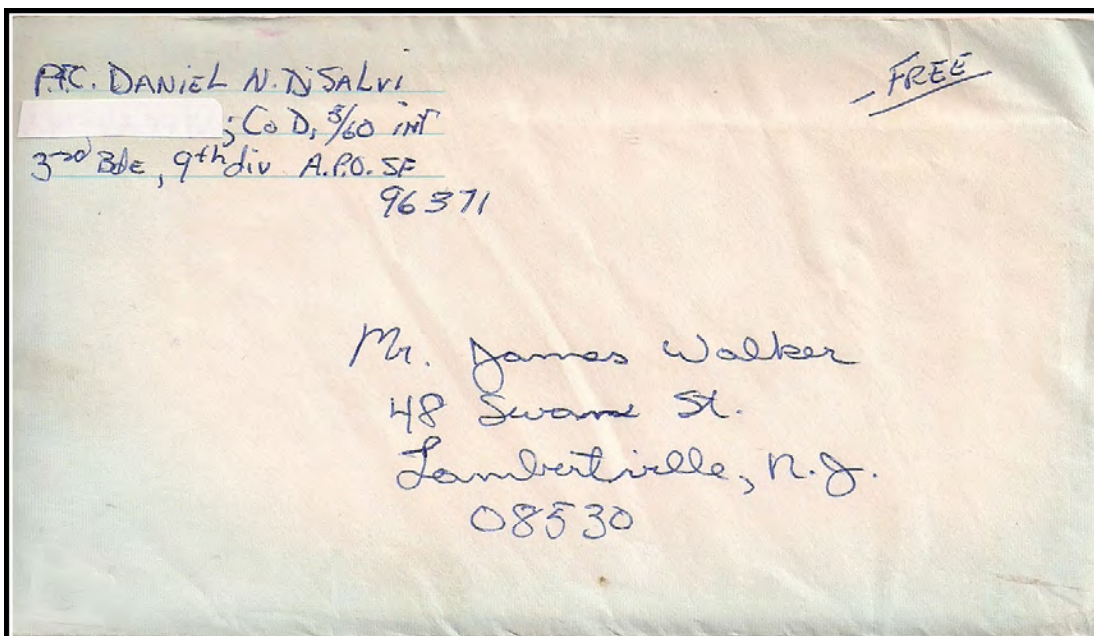 P.F.C. DANIEL N. DiSALVI
; Co D, 5/60 inf
3rd Bde, 9th div A.P.O. SF
96371
FREE
Mr. James Walker
48 Swann St.
Lambertville, N.J.
08530